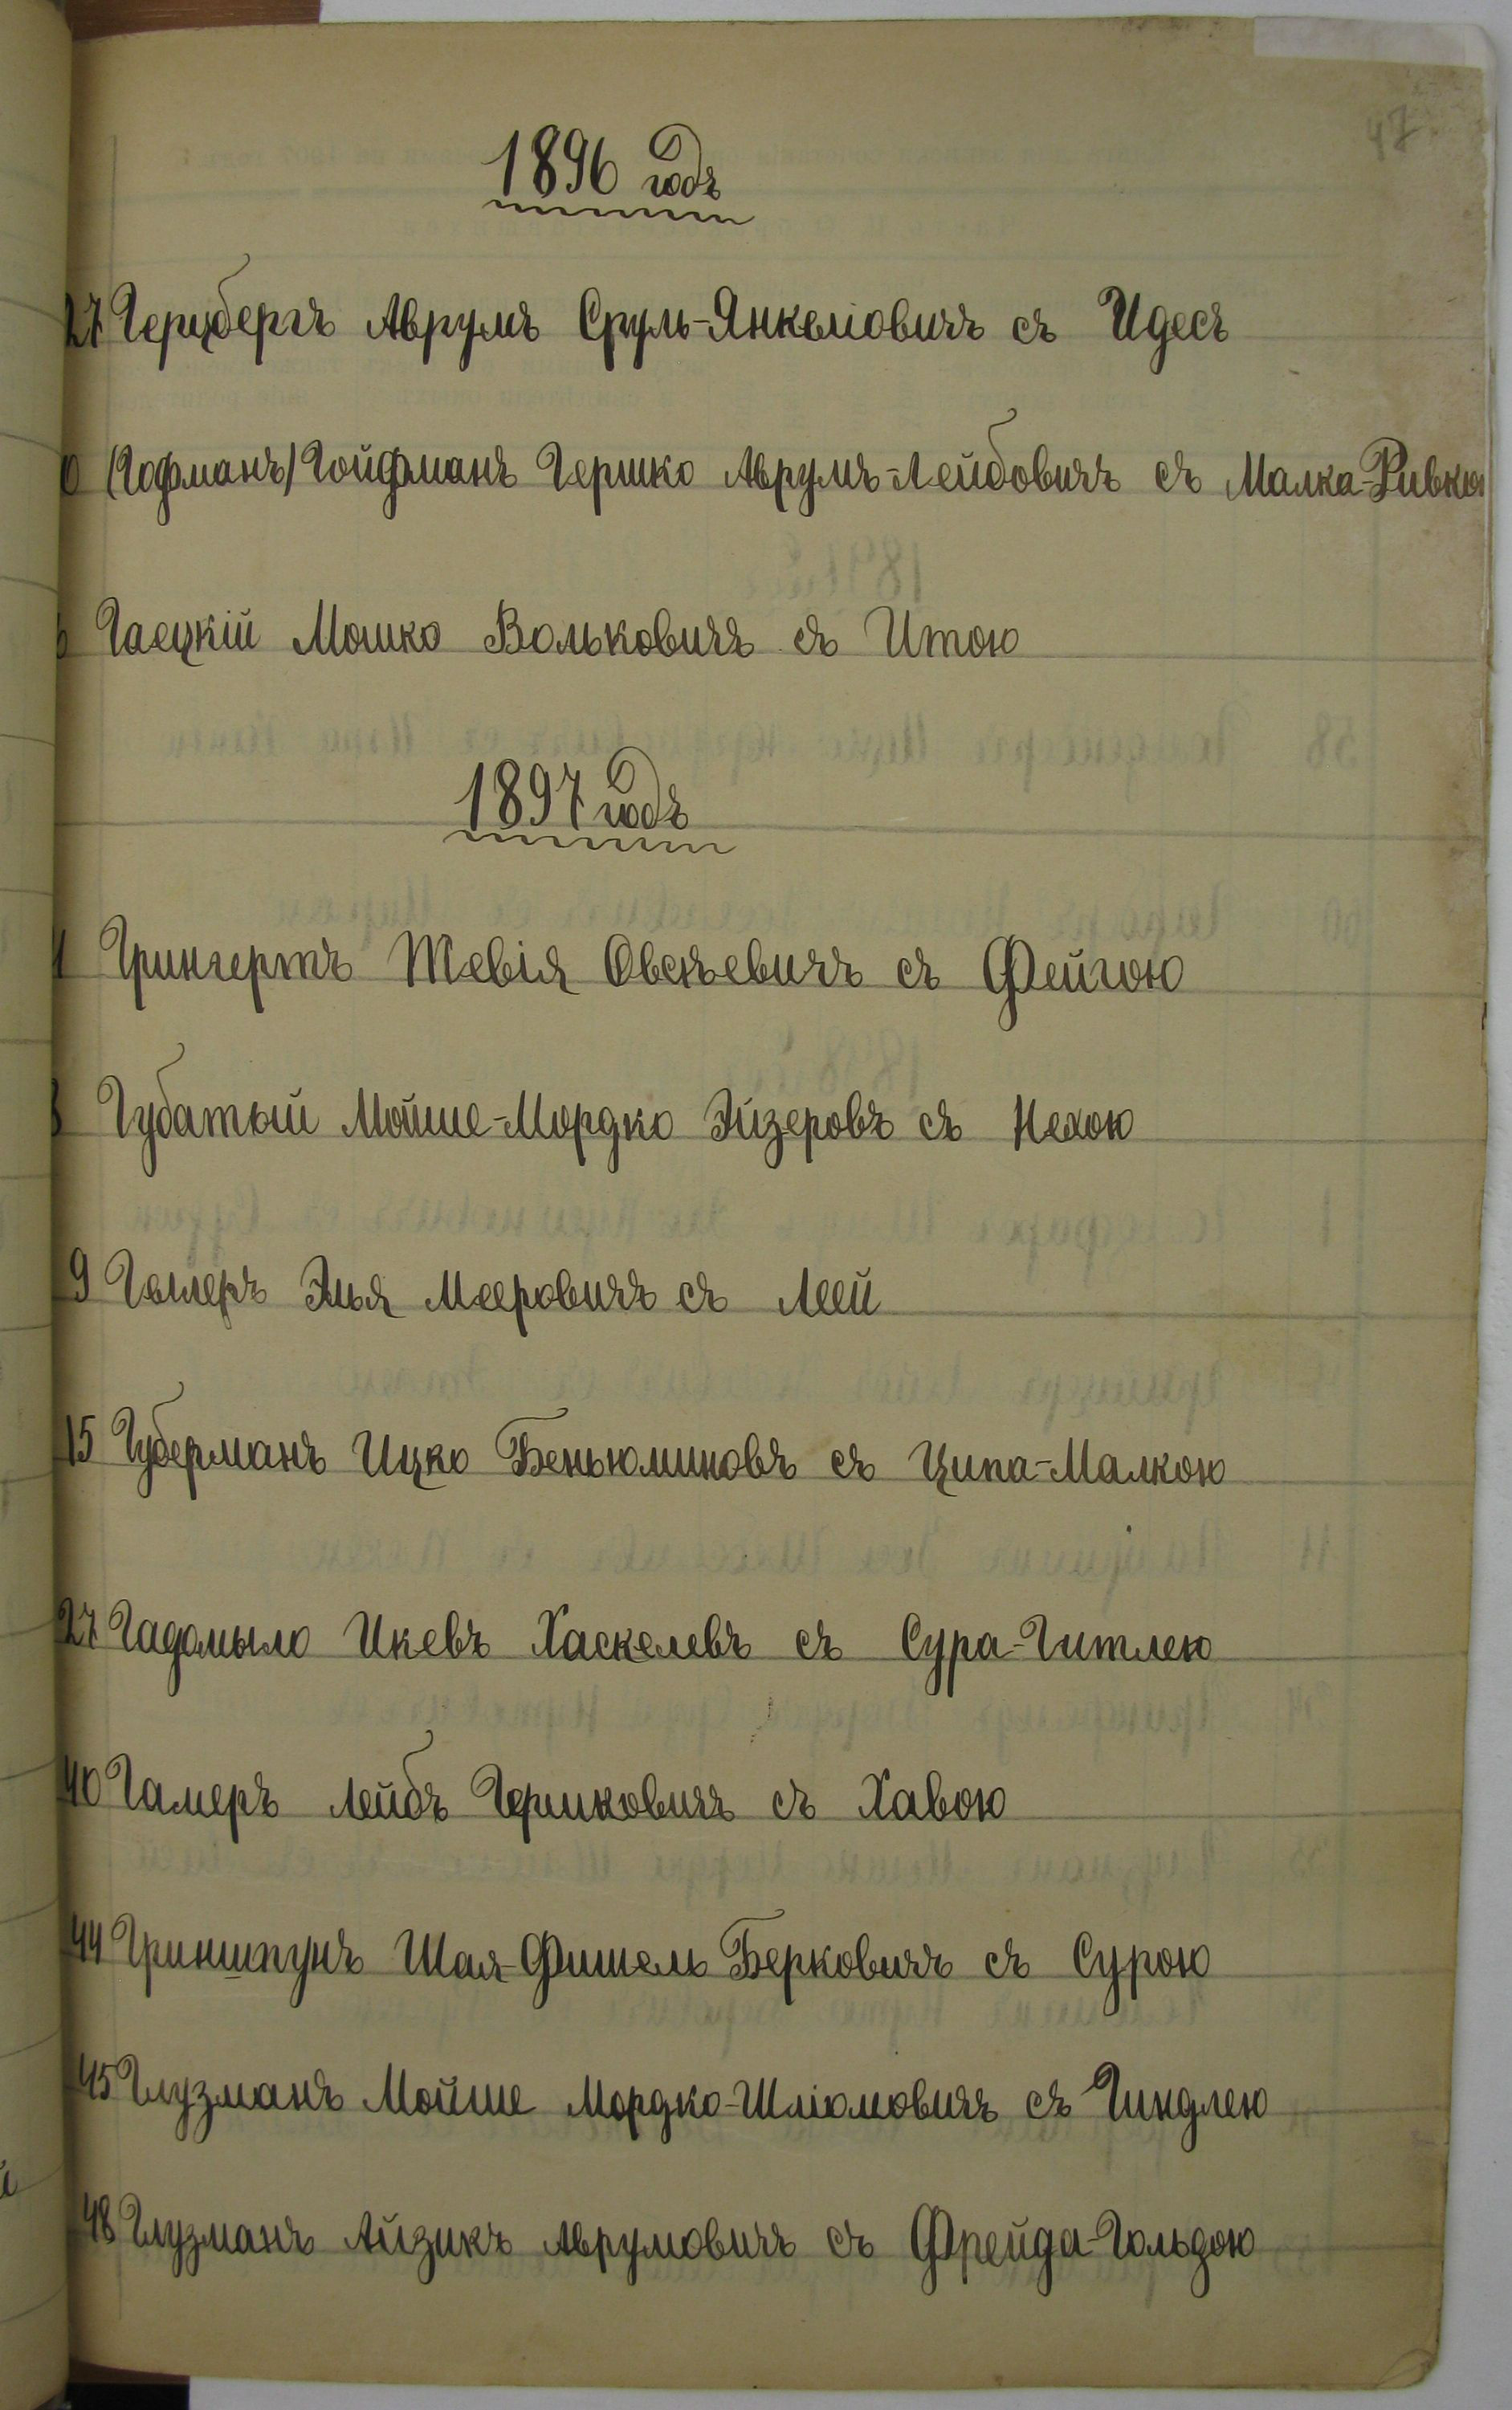 47
1896 годъ
27 Герцбергъ Аврумъ Сруль-Янкелiовичъ съ Идесъ
0 (Гофманъ) Гойфманъ Гершко Аврумъ-Лейбовичъ съ Малка-Ривкою
Гаецкій Мошко Вольковичъ съ Итою
1897 годъ
1 Грингертъ Тевія Овсѣевичъ съ Фейгою
3 Губатый Мойше-Мордко Эйзеровъ съ Нехою
9 Гелеръ Элья Мееровичъ съ Леей
15 Губерманъ Ицко Беньюминовъ съ Ципа-Малкою
27 Гадомыло Икевъ Хаскелевъ съ Сура-Гитлею
40 Гамеръ Лейбъ Гершковичъ съ Хавою
44 Гриншпунъ Шая-Фишель Берковичъ съ Сурою
45 Глузманъ Мойше Мордко-Шлiомовичъ съ Гиндлею
48 Глузманъ Айзикъ Аврумовичъ съ Фрейда-Гольдою